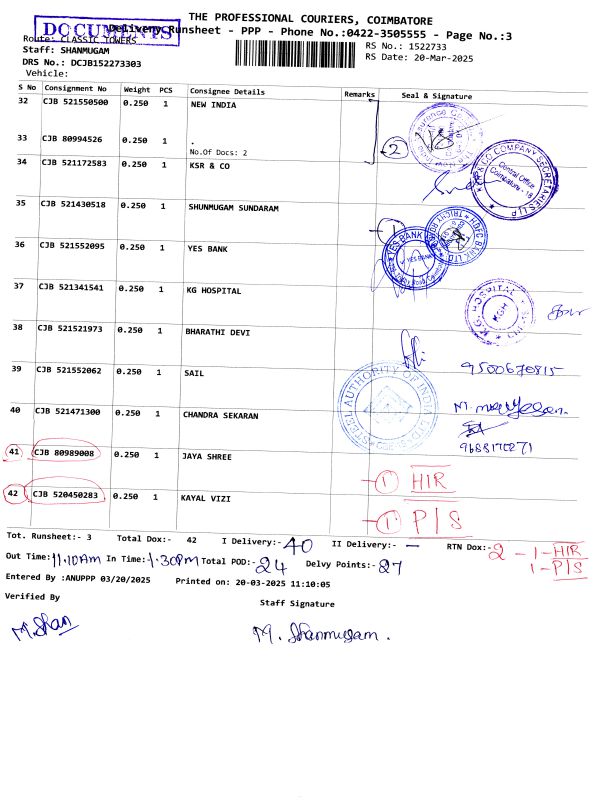 THE PROFESSIONAL COURIERS, COIMBATORE
DOCUMENTS
Delivery Runsheet - PPP - Phone No.:0422-3505555 - Page No.:3
Route: CLASSIC TOWERS
RS No.: 1522733
Staff: SHANMUGAM
RS Date: 20-Mar-2025
DRS No.: DCJB152273303
Vehicle:
S No Consignment No Weight PCS Consignee Details Remarks Seal & Signature
32 CJB 521550500 0.250 1 NEW INDIA
33 CJB 80994526 0.250 1 .
No.Of Docs: 2
2
34 CJB 521172583 0.250 1 KSR & CO
COMPANY SECRETARIES LLP
Central Office
Coimbatore - 18
35 CJB 521430518 0.250 1 SHUNMUGAM SUNDARAM
HDFC BANK LTD
36 CJB 521552095 0.250 1 YES BANK
YES BANK
YES BANK
37 CJB 521341541 0.250 1 KG HOSPITAL
K.G. HOSPITAL
KGH
38 CJB 521521973 0.250 1 BHARATHI DEVI
9500670815
39 CJB 521552062 0.250 1 SAIL
STEEL AUTHORITY OF INDIA LTD
40 CJB 521471300 0.250 1 CHANDRA SEKARAN
41 CJB 80989008 0.250 1 JAYA SHREE
1 HIR
42 CJB 520450283 0.250 1 KAYAL VIZI
1 P/S
Tot. Runsheet:- 3 Total Dox:- 42 I Delivery:- 40 II Delivery:- — RTN Dox:- 2 - 1 - HIR
1 - P/S
Out Time: 11.10AM In Time: 1.30PM Total POD:- 24 Delvy Points:- 27
Entered By :ANUPPP 03/20/2025 Printed on: 20-03-2025 11:10:05
Verified By
Staff Signature
M. Shan
M. Shanmugam.